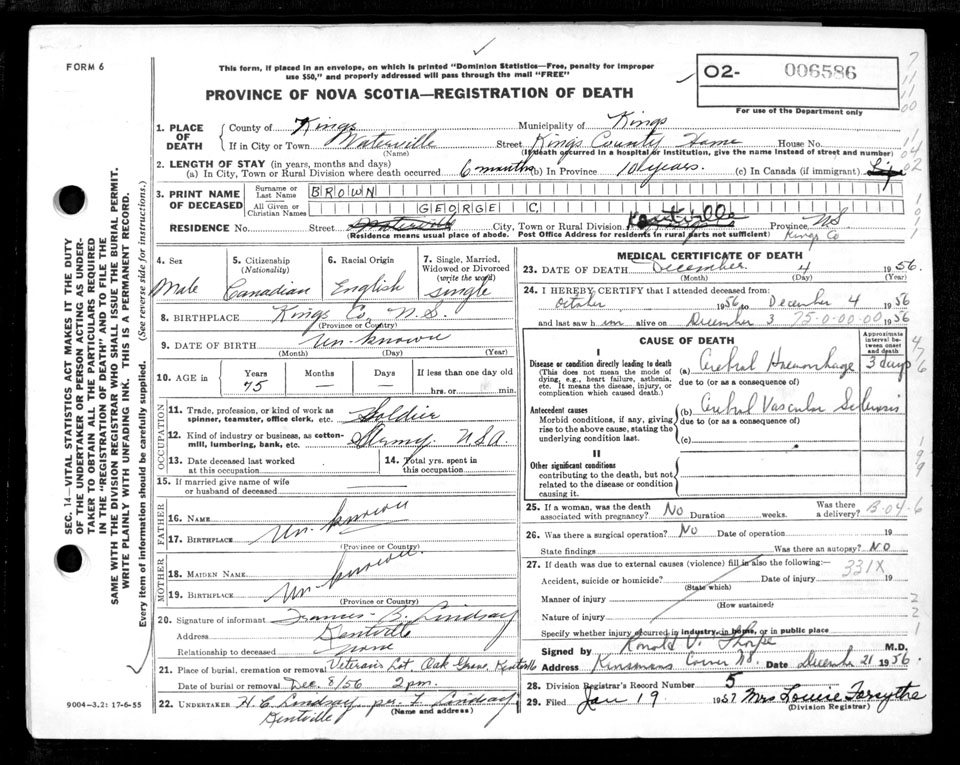 FORM 6
This form, if placed in an envelope, on which is printed "Dominion Statistics—Free, penalty for improper
use $50," and properly addressed will pass through the mail "FREE"
O2- 006586
For use of the Department only
PROVINCE OF NOVA SCOTIA—REGISTRATION OF DEATH
1. PLACE OF DEATH
County of Kings Municipality of Kings
If in City or Town Waterville Street Kings County Home House No.
(Name) (If death occurred in a hospital or institution, give the name instead of street and number)
2. LENGTH OF STAY (in years, months and days)
(a) In City, Town or Rural Division where death occurred 6 months (b) In Province years. (c) In Canada (if immigrant) Life
3. PRINT NAME OF DECEASED
Surname or Last Name BROWN
All Given or Christian Names GEORGE C.
RESIDENCE No. Street Waterville City, Town or Rural Division Kentville Province N.S.
(Residence means usual place of abode. Post Office Address for residents in rural parts not sufficient) Kings Co
4. Sex
Male
5. Citizenship
(Nationality)
Canadian
6. Racial Origin
English
7. Single, Married, Widowed or Divorced
(write the word)
single
8. BIRTHPLACE Kings Co, N.S.
(Province or Country)
9. DATE OF BIRTH Un-known
(Month) (Day) (Year)
10. AGE in Years Months Days If less than one day old
75 — — hrs. or min.
OCCUPATION
11. Trade, profession, or kind of work as
spinner, teamster, office clerk, etc. Soldier
12. Kind of industry or business, as cotton-
mill, lumbering, bank, etc. Army
13. Date deceased last worked
at this occupation
14. Total yrs. spent in
this occupation
15. If married give name of wife
or husband of deceased
FATHER
16. NAME
Un-known
17. BIRTHPLACE
(Province or Country)
MOTHER
18. MAIDEN NAME
Un-known
19. BIRTHPLACE
(Province or Country)
20. Signature of informant Francis B. Lindsay
Address Kentville
Relationship to deceased none
21. Place of burial, cremation or removal Veterans Lot Oak Grove, Kentville
Date of burial or removal Dec. 8/56 2 pm.
22. UNDERTAKER H. C. Lindsay per F. Lindsay
Kentville (Name and address)
MEDICAL CERTIFICATE OF DEATH
23. DATE OF DEATH December 4 1956.
(Month) (Day)
24. I HEREBY CERTIFY that I attended deceased from:
October 1956 to December 4 1956
and last saw h im alive on December 3 75-0-00-00 1956
CAUSE OF DEATH
Approximate interval between onset and death
I
Disease or condition directly leading to death
(This does not mean the mode of
dying, e.g., heart failure, asthenia,
etc. It means the disease, injury, or
complication which caused death.)
(a) Cerebral Haemorrhage 3 days
due to (or as a consequence of)
Antecedent causes
Morbid conditions, if any, giving
rise to the above cause, stating the
underlying condition last.
(b) Cerebral Vascular Sclerosis
due to (or as a consequence of)
(c)
II
Other significant conditions
contributing to the death, but not
related to the disease or condition
causing it.
25. If a woman, was the death
associated with pregnancy? No Duration weeks. Was there a delivery? B-04-6
26. Was there a surgical operation? No Date of operation 19
State findings Was there an autopsy? No
27. If death was due to external causes (violence) fill in also the following:— 331X
Accident, suicide or homicide? Date of injury 19
(State which)
Manner of injury
(How sustained)
Nature of injury
Specify whether injury occurred in industry, in home, or in public place
Signed by Ronald V. Thorpe M.D.
Address Kinsmans Corner N.S. Date December 21 1956.
28. Division Registrar's Record Number 5
29. Filed Jan 19 1957 Mrs Louise Forsythe
(Division Registrar)
SEC. 14—VITAL STATISTICS ACT MAKES IT THE DUTY
OF THE UNDERTAKER OR PERSON ACTING AS UNDER-
TAKER TO OBTAIN ALL THE PARTICULARS REQUIRED
IN THE "REGISTRATION OF DEATH" AND TO FILE THE
SAME WITH THE DIVISION REGISTRAR WHO SHALL ISSUE THE BURIAL PERMIT.
WRITE PLAINLY WITH UNFADING INK. THIS IS A PERMANENT RECORD.
Every item of information should be carefully supplied. (See reverse side for instructions.)
9004-3.2: 17-6-55